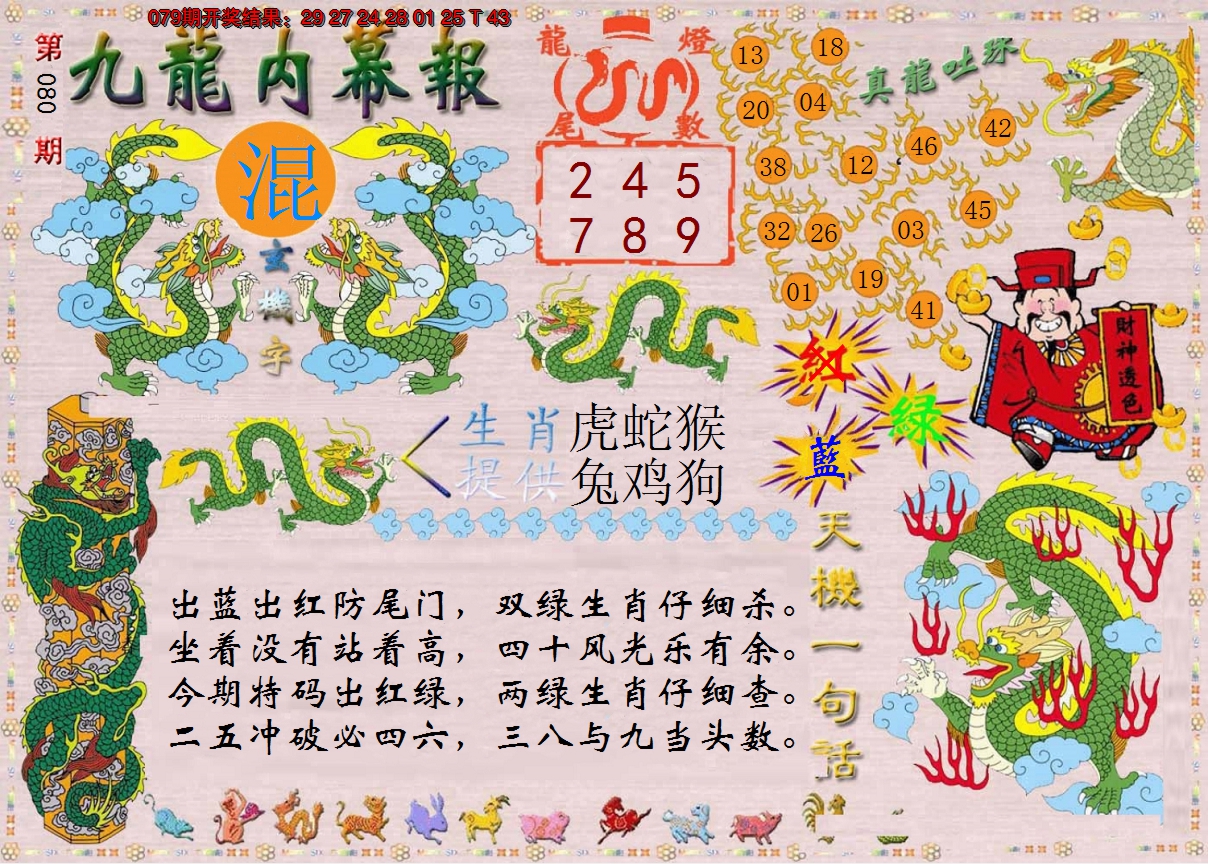 079期开奖结果：29 27 24 28 01 25 T 43
第080期
九龍内幕報
混
玄機字
龍燈尾數
2 4 5
7 8 9
真龍吐珠
13
18
20
04
46
42
38
12
45
32
26
03
19
01
41
財神透色
紅
绿
藍
生肖提供
虎蛇猴
兔鸡狗
天機一句話
出蓝出红防尾门，双绿生肖仔细杀。
坐着没有站着高，四十风光乐有余。
今期特码出红绿，两绿生肖仔细查。
二五冲破必四六，三八与九当头数。